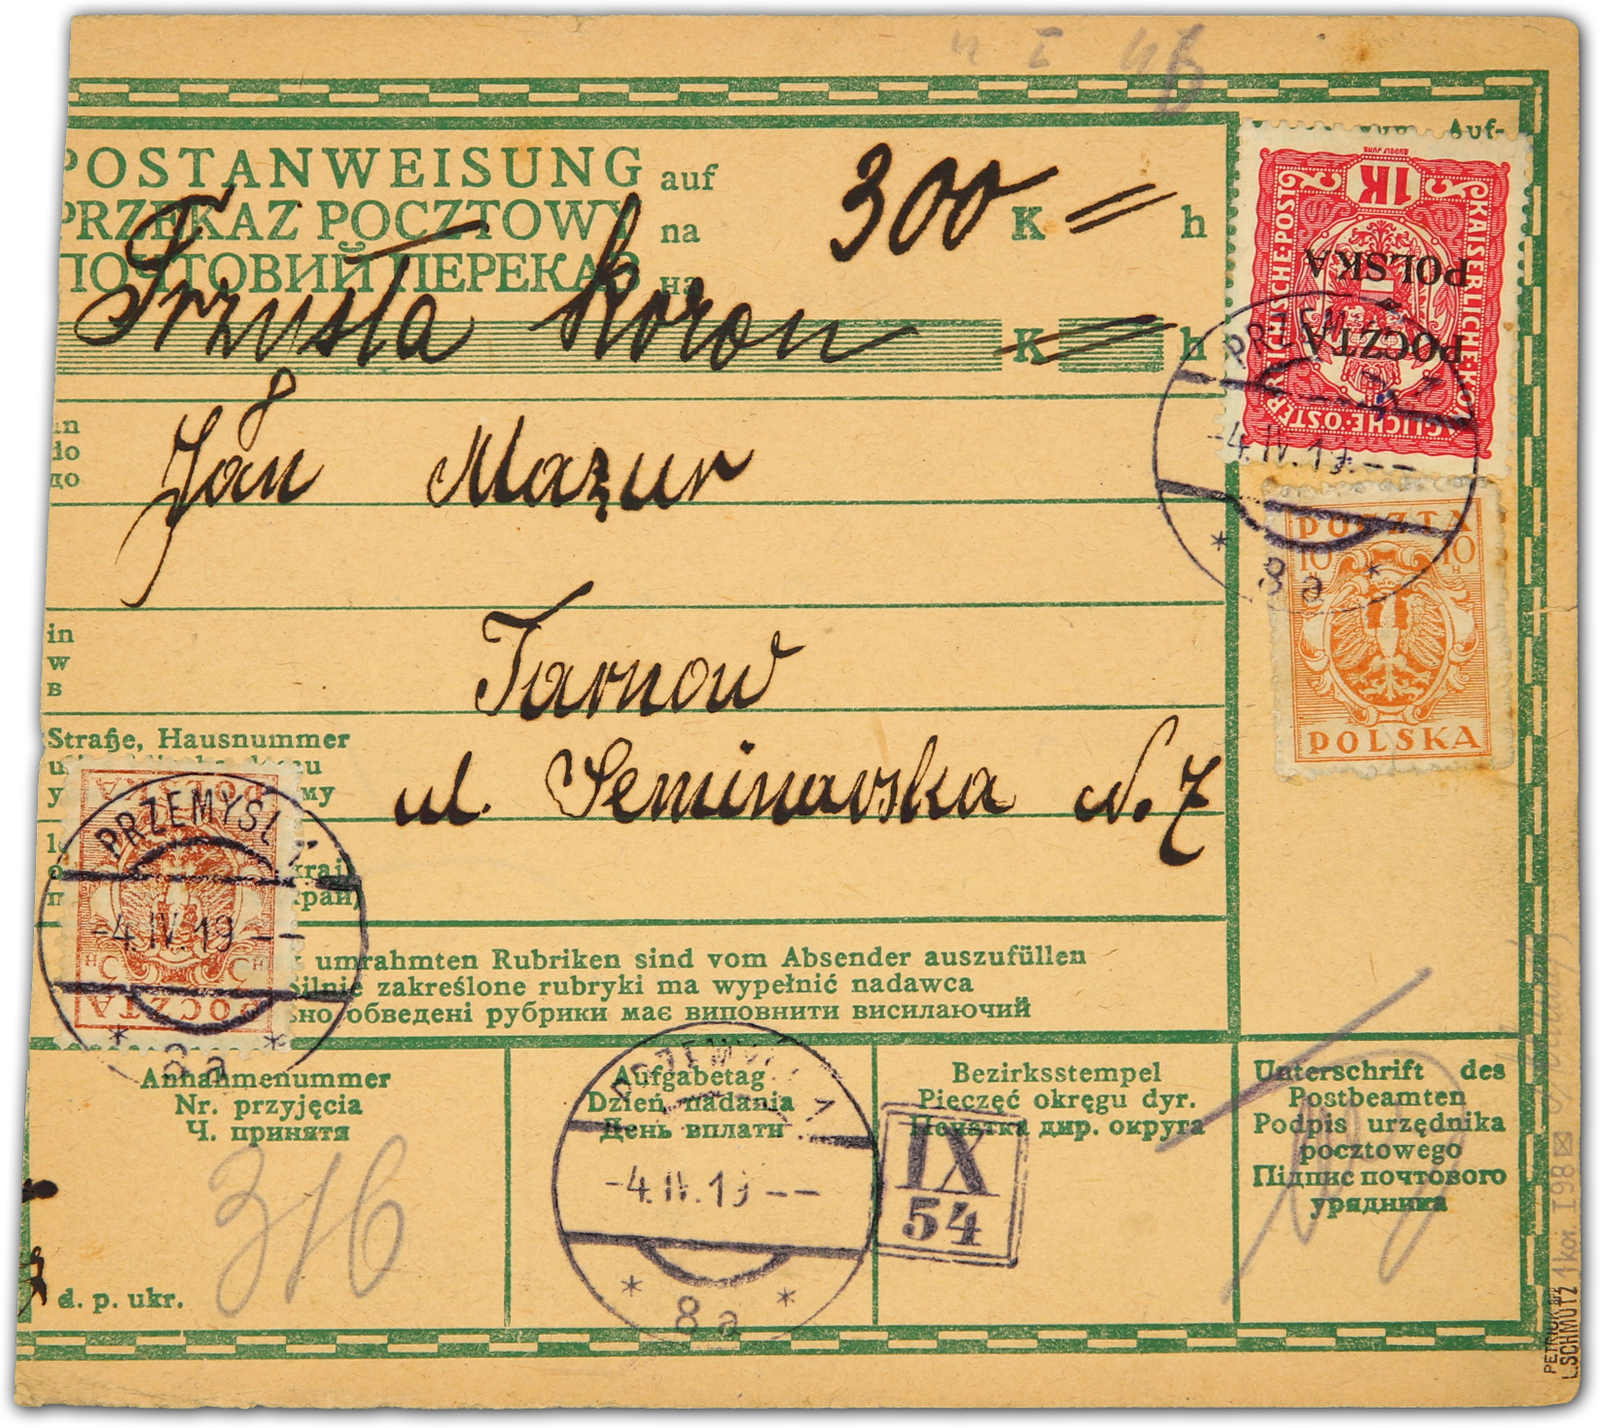 Auf-
POSTANWEISUNG auf 300 K = h
PRZEKAZ POCZTOWY na
ПОЧТОВИЙ ПЕРЕКАЗ на
Trzysta koron K = h
in
do
до
Jan Mazur
in
w
в
Tarnow
Straße, Hausnummer
ul. Seminarska N. 7
kraj)
край)
umrahmten Rubriken sind vom Absender auszufüllen
Silnie zakreślone rubryki ma wypełnić nadawca
обведені рубрики має виповнити висилаючий
Annahmenummer
Nr. przyjęcia
Ч. принятя
316
d. p. ukr.
Aufgabetag
Dzień nadania
День вплати
Bezirksstempel
Pieczęć okręgu dyr.
Печатка дир. округа
IX
54
Unterschrift des
Postbeamten
Podpis urzędnika
pocztowego
Підпис почтового
урядника
1K
KAISERLICHE KÖNIGLICHE OSTERREICHISCHE POST
POCZTA
POLSKA
PRZEMYŚL 1
-4.IV.19--
* 8a *
POCZTA
10 10
POLSKA
POCZTA
3 3
POLSKA
PRZEMYŚL 1
-4.IV.19--
* 8a *
PRZEMYŚL 1
-4.IV.19--
* 8a *
PETRIUK
L.SCHMUTZ